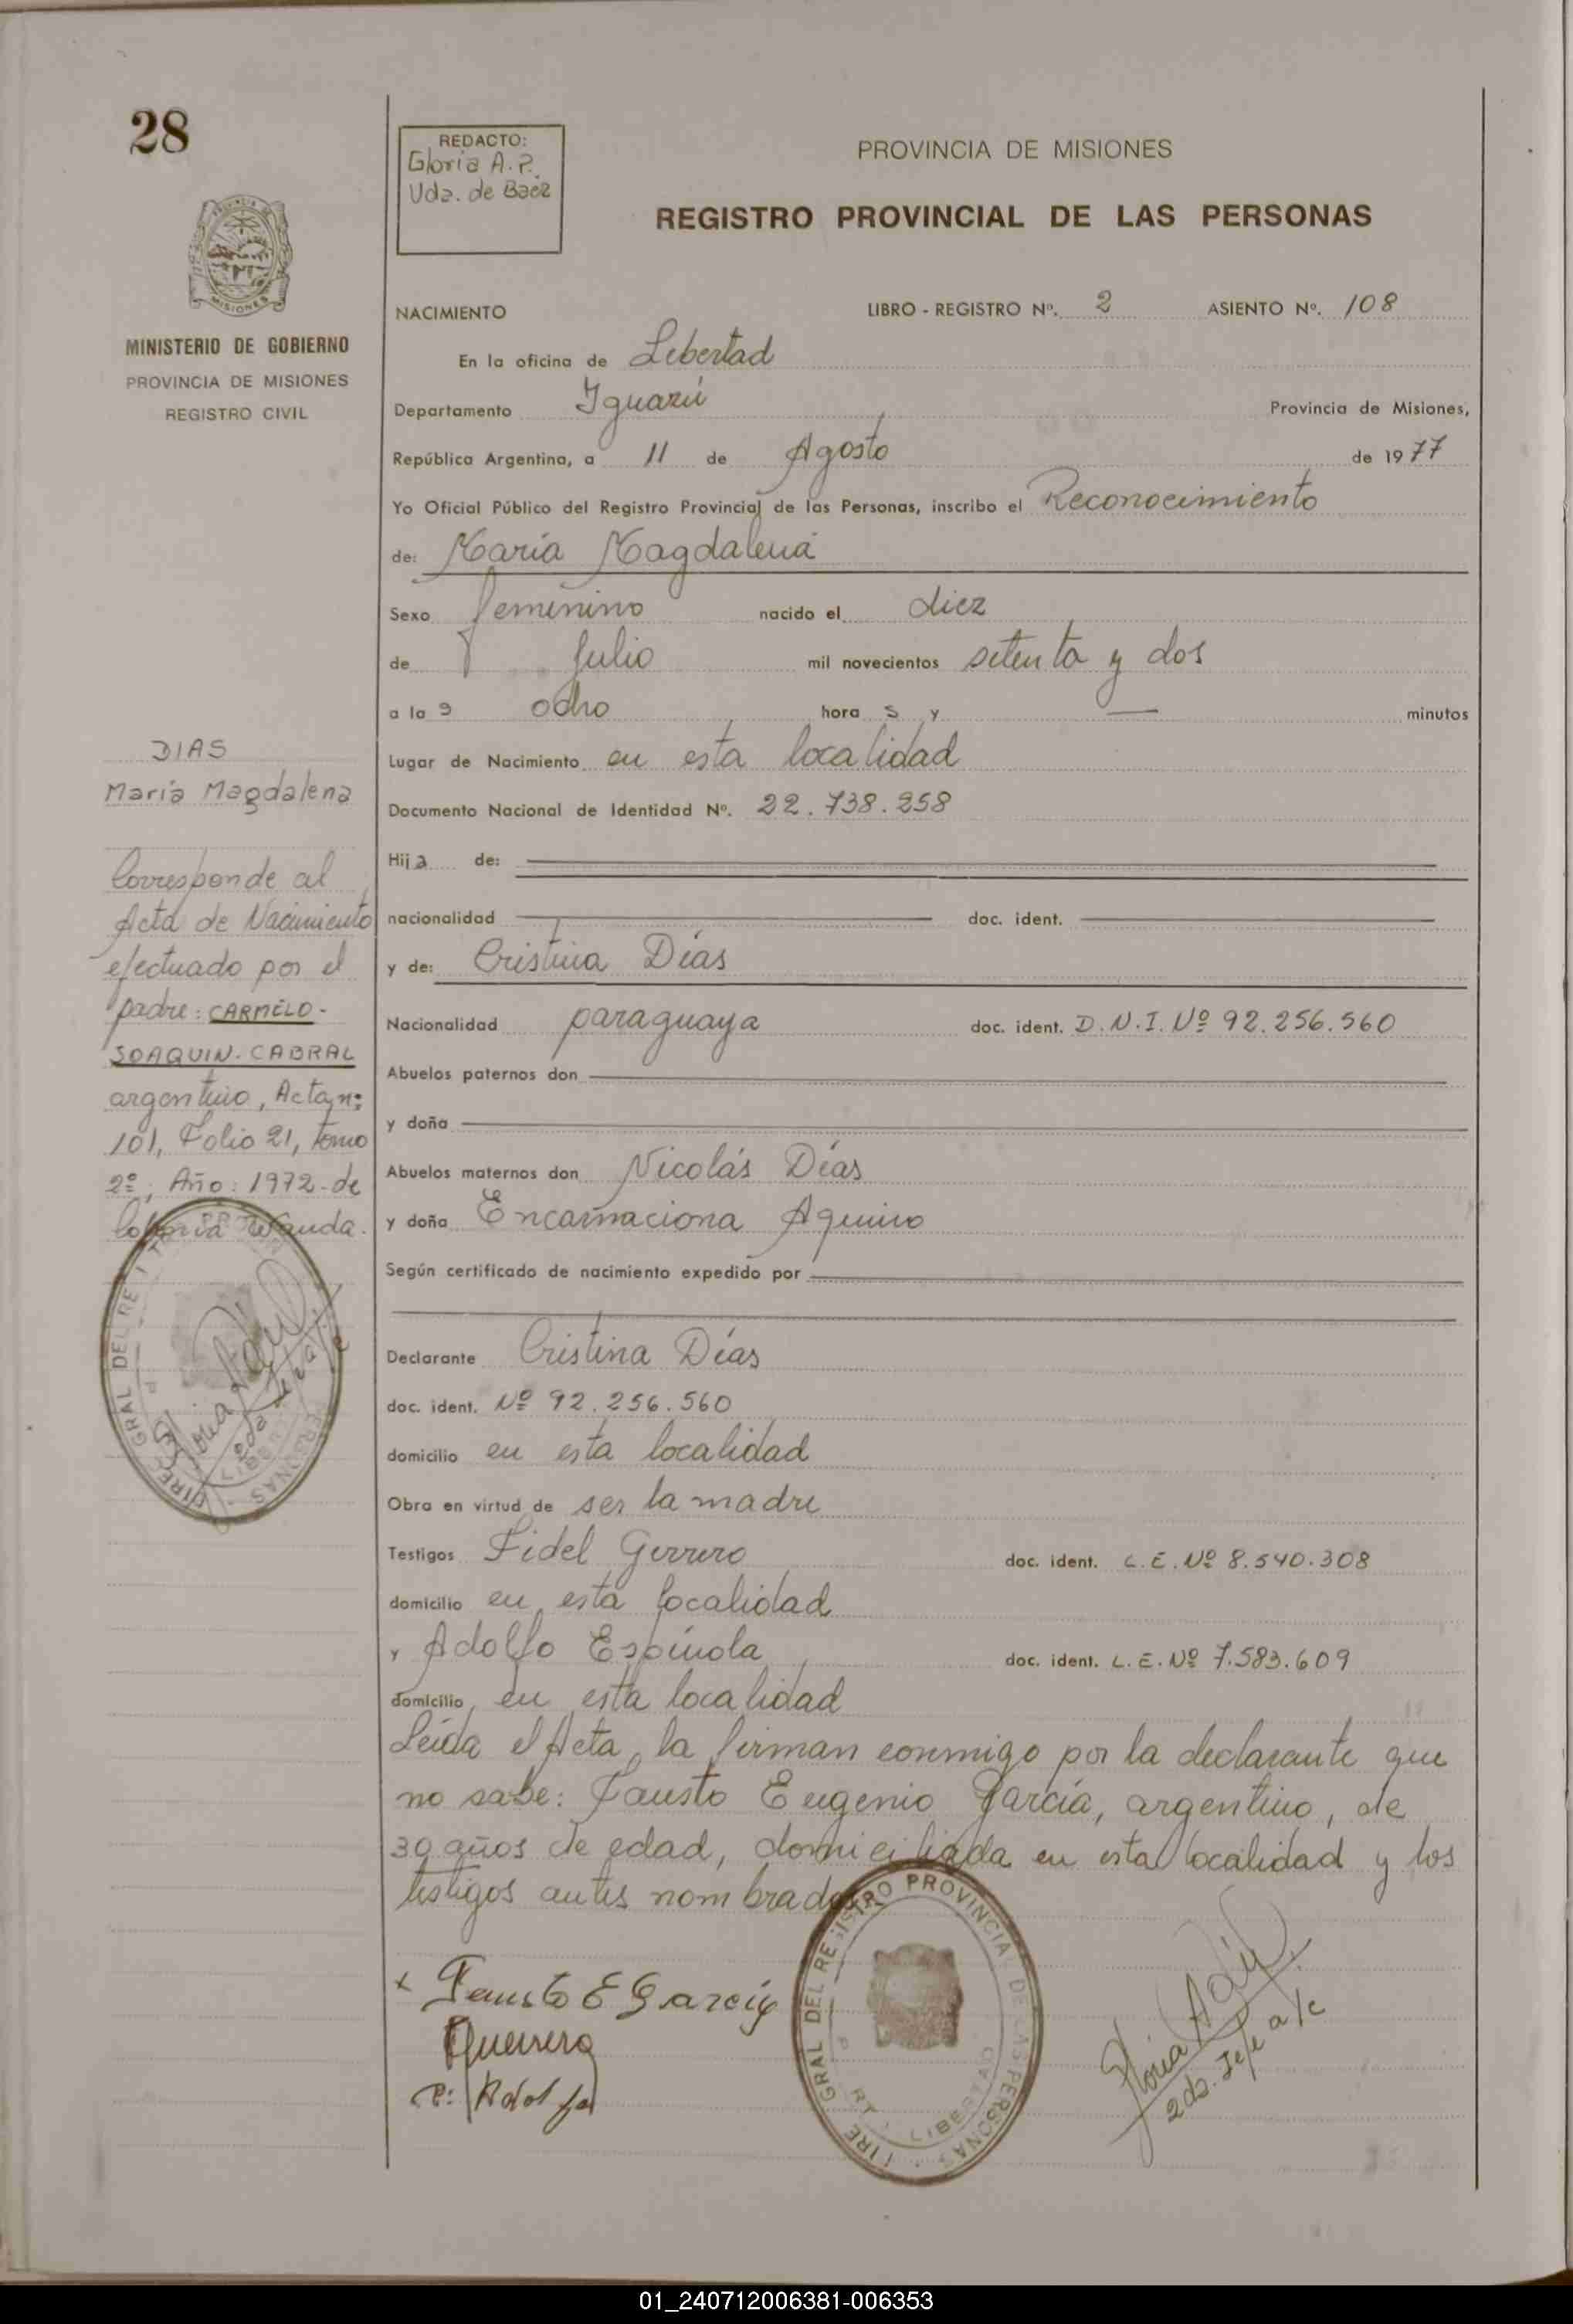 28
REDACTO:
Gloria A. P.
Vda. de Baez
PROVINCIA DE MISIONES
REGISTRO PROVINCIAL DE LAS PERSONAS
MISIONES
MINISTERIO DE GOBIERNO
PROVINCIA DE MISIONES
REGISTRO CIVIL
NACIMIENTO LIBRO - REGISTRO Nº. 2 ASIENTO Nº. 108
En la oficina de Libertad
Departamento Iguazú Provincia de Misiones,
República Argentina, a 11 de Agosto de 1977
Yo Oficial Público del Registro Provincial de las Personas, inscribo el Reconocimiento
de: María Magdalena
Sexo femenino nacido el diez
de Julio mil novecientos setenta y dos
a la s ocho hora s y — minutos
Lugar de Nacimiento en esta localidad
Documento Nacional de Identidad Nº. 22.738.258
Hija de:
nacionalidad doc. ident.
y de: Cristina Días
Nacionalidad paraguaya doc. ident. D.N.I. Nº 92.256.560
Abuelos paternos don
y doña
Abuelos maternos don Nicolás Días
y doña Encarnaciona Aquino
Según certificado de nacimiento expedido por
Declarante Cristina Días
doc. ident. Nº 92.256.560
domicilio en esta localidad
Obra en virtud de ser la madre
Testigos Fidel Gerrero doc. ident. L.E. Nº 8.540.308
domicilio en esta localidad
y Adolfo Espínola doc. ident. L.E. Nº 7.583.609
domicilio en esta localidad
Leída el Acta, la firman conmigo por la declarante que
no sabe: Fausto Eugenio García, argentino, de
30 años de edad, domiciliada en esta localidad y los
testigos antes nombrados
DIAS
María Magdalena
Corresponde al
Acta de Nacimiento
efectuado por el
padre: CARMELO-
JOAQUIN-CABRAL
argentino, Acta nº
101, Folio 21, tomo
2º, Año: 1972-de
Colonia Wanda.
x Fausto E Garcia
Guerrero
Adolfo
GRAL DEL REGISTRO PROVINCIAL DE LAS PERSONAS
LIBERTAD
Gloria
2da. Jefe a/c
01_240712006381-006353